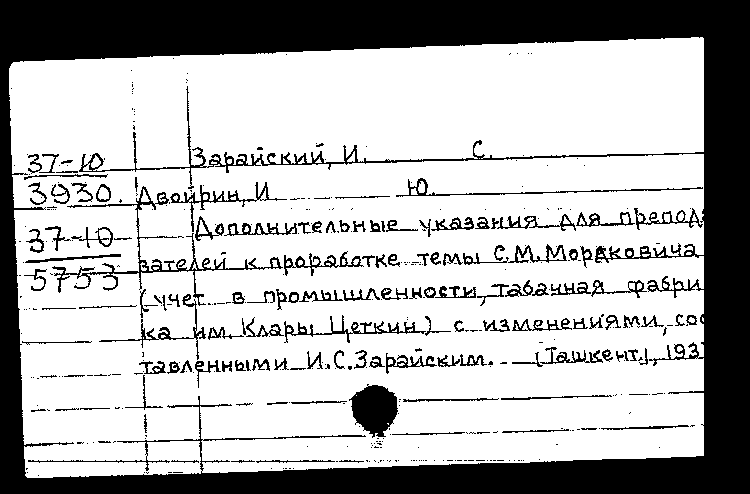 37-10 Зарайский, И. С.
3930. Двойрин, И Ю.
37-10 Дополнительные указания для препода
5753 вателей к проработке темы С.М. Мордковича
(учет в промышленности, табачная фабри
ка им. Клары Цеткин) с изменениями, сос
тавленными И.С. Зарайским. [Ташкент], 193